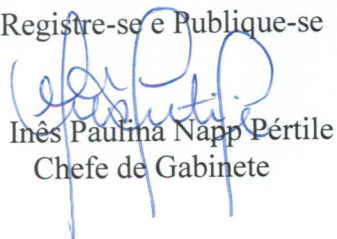 Registre-se e Publique-se
Inês Paulina Napp Pértile
Chefe de Gabinete